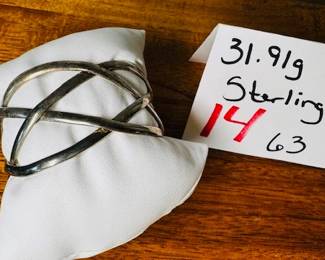 31.91g
Sterling
14
63